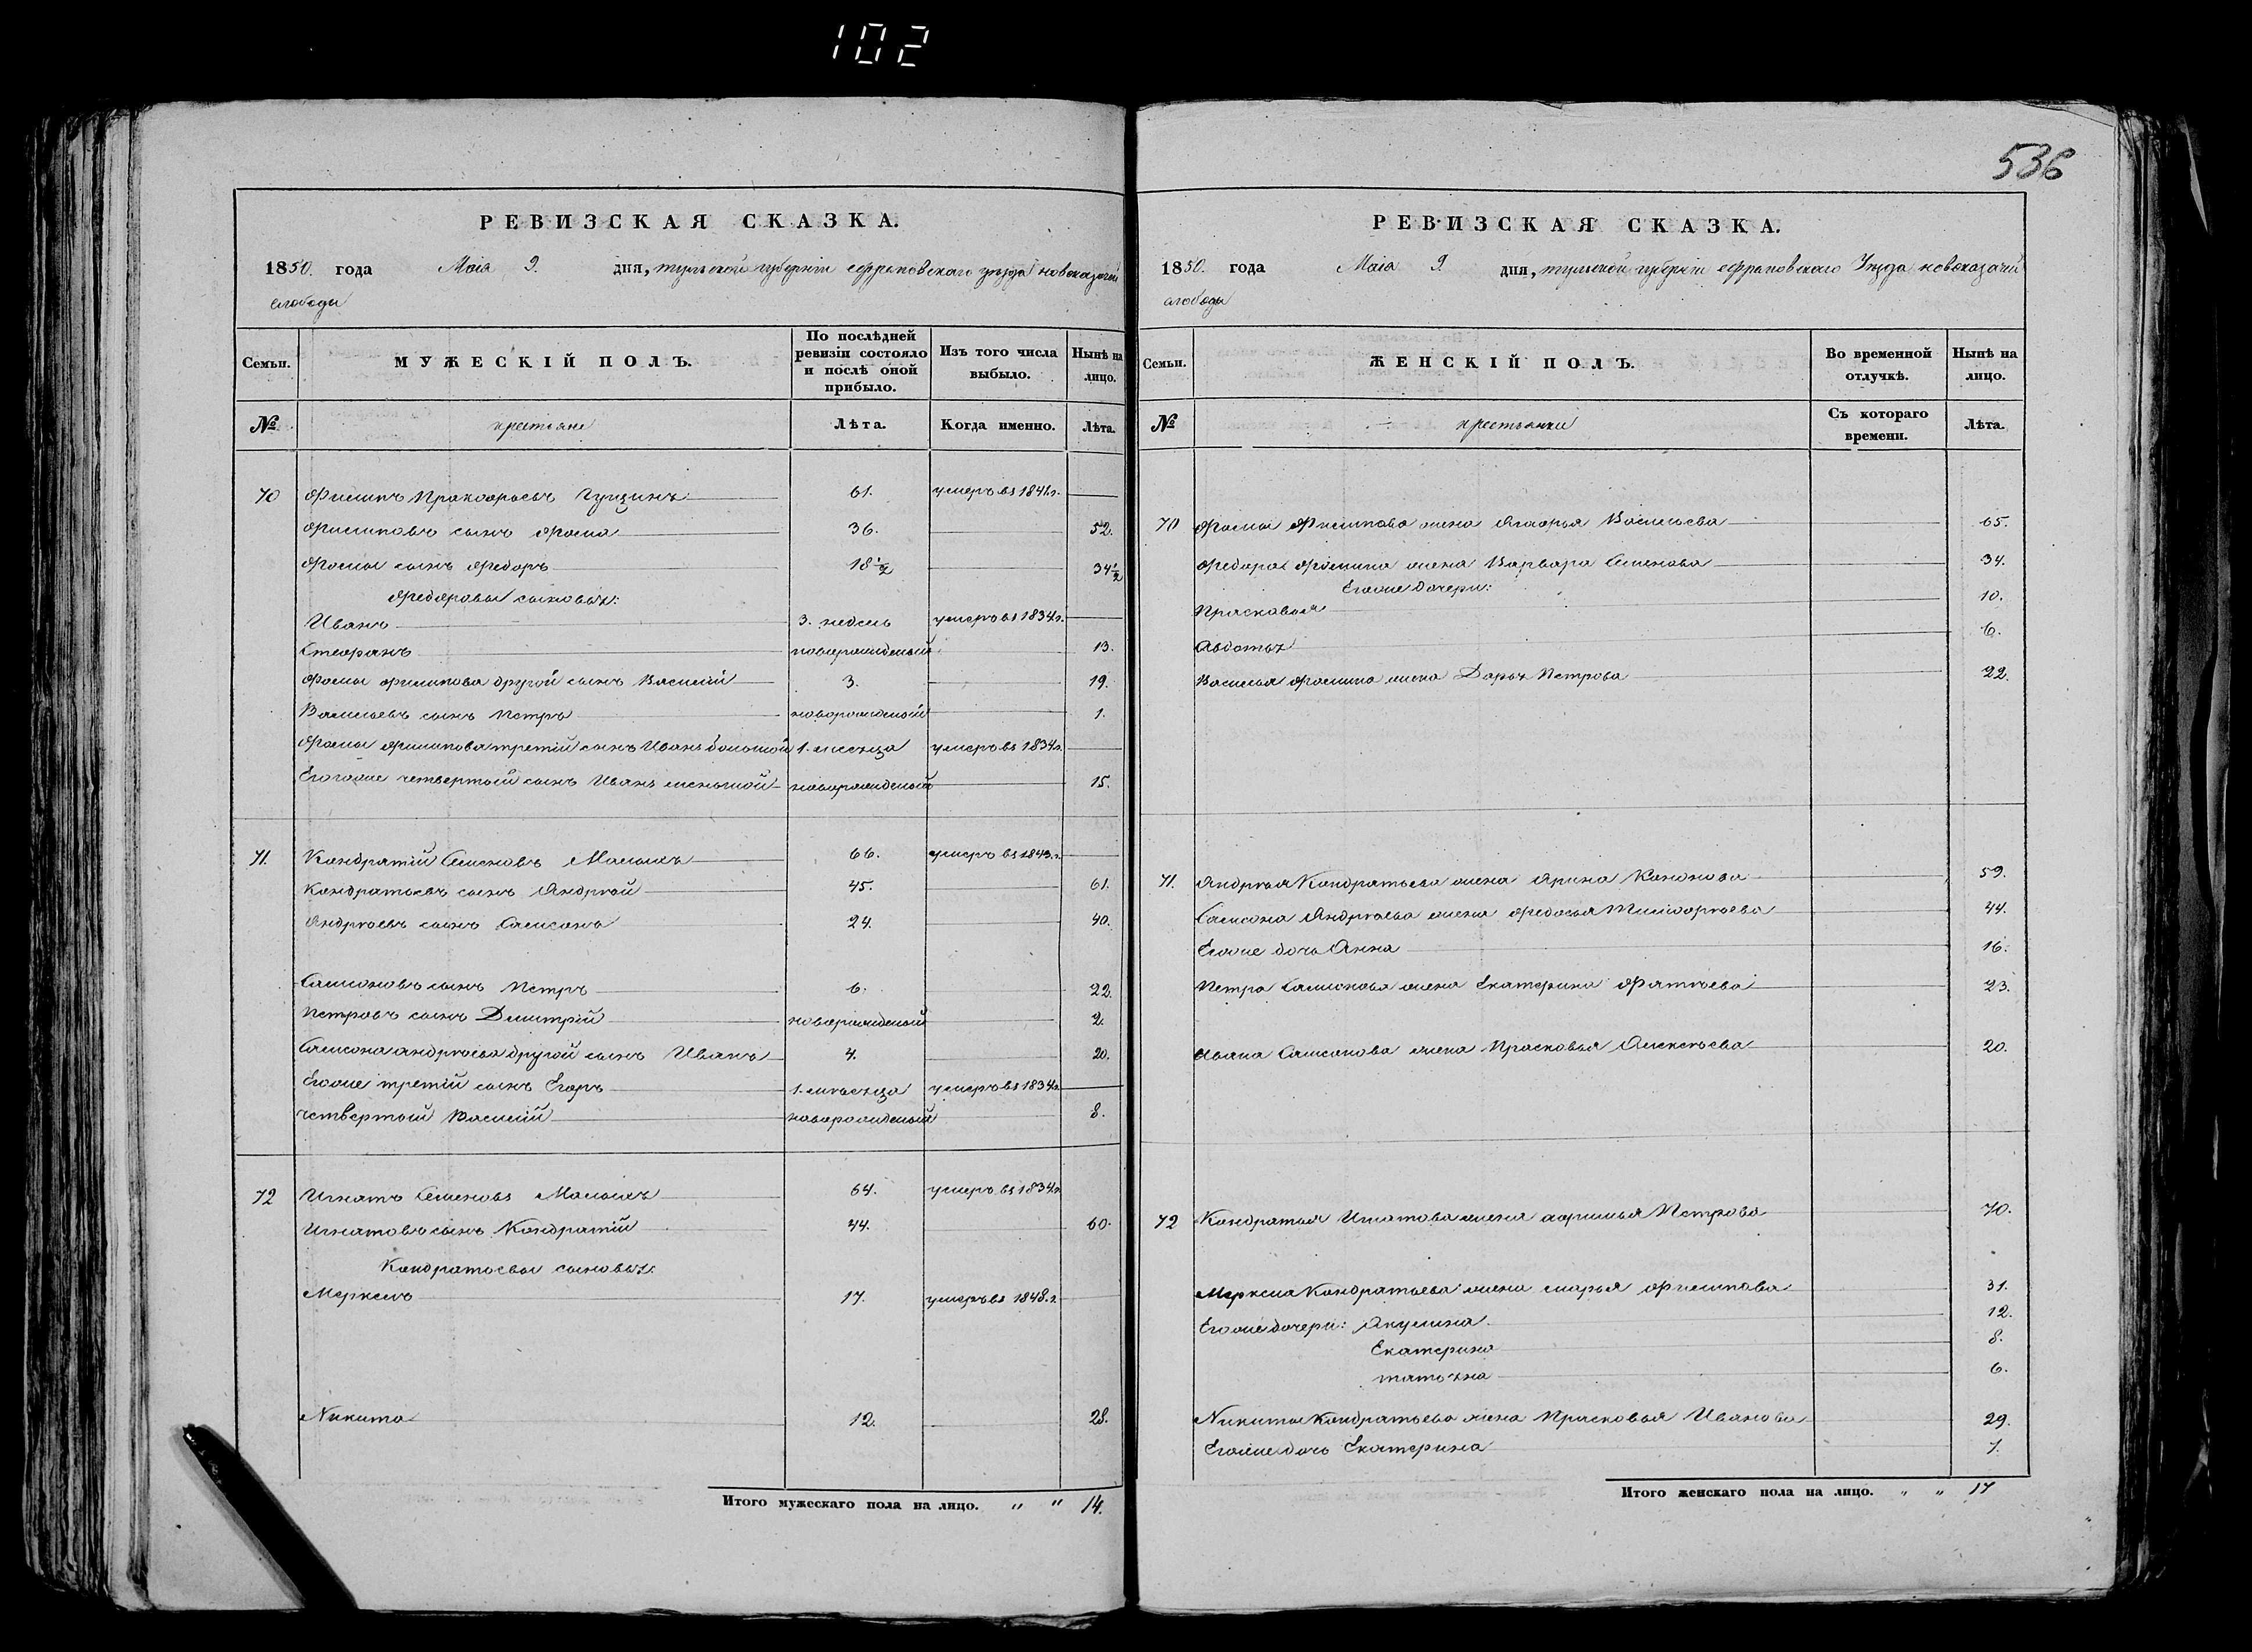 102
536
РЕВИЗСКАЯ СКАЗКА.
1850. года Маія 9. дня, тульской губерніи ефремовскаго уѣзда новоказачей
слободы
Семьи. МУЖЕСКІЙ ПОЛЪ. По послѣдней ревизіи состояло и послѣ оной прибыло. Изъ того числа выбыло. Нынѣ на лицо.
№ крестьяне Лѣта. Когда именно. Лѣта.
70 Филипъ Прокофьевъ 61. умеръ въ
Филиповъ сынъ Фома 36. 52.
Фомы сынъ Федоръ 18 1/2 34 1/2
Федоровы сыновья:
Иванъ 3. недель умеръ въ 1834г.
Стефанъ новорожденый 13.
Фомы филипова другой сынъ Василій 3. 19.
Васильевъ сынъ Петръ новорожденый 1.
Фомы Филипова третій сынъ Иванъ большой 1. месяца умеръ въ 1834г.
Егоже четвертый сынъ Иванъ меньшой новорожденый 15.
71. Кондратій Семеновъ Малыхъ 66. умеръ въ 1843.г.
Кондратьевъ сынъ Андрей 45. 61.
Андреевъ сынъ Самсонъ 24. 40.
Самсоновъ сынъ Петръ 6. 22.
Петровъ сынъ Дмитрій новорожденый 2.
Самсона андреева другой сынъ Иванъ 4. 20.
Егоже третій сынъ Егоръ 1. месяца умеръ въ 1834г.
четвертый Василій новорожденый 8.
72 Игнатъ Семеновъ Малыхъ 64. умеръ въ 1834г.
Игнатовъ сынъ Кондратій 44. 60.
Кондратьевы сыновья:
Меркелъ 17. умеръ въ 1848.г.
Никита 12. 28.
Итого мужескаго пола на лицо. " " 14.
РЕВИЗСКАЯ СКАЗКА.
1850. года Маія 9. дня, тульской губерніи ефремовскаго Уѣзда новоказачей
слободы
Семьи. ЖЕНСКІЙ ПОЛЪ. Во временной отлучкѣ. Нынѣ на лицо.
№ крестьянки Съ котораго времени. Лѣта.
70 Фомы Филипова жена Агафья Васильева 65.
Федора Фомина жена Варвара Семенова 34.
Егоже дочери:
Прасковья 10.
Авдотья 6.
Василья фомина жена Дарья Петрова 22.
71. Андрея Кондратьева жена Арина Кононова 59.
Самсона Андреева жена Федосья Тимофеева 44.
Егоже дочь Анна 16.
Петра Самсонова жена Екатерина Фатеева 23.
Ивана Самсонова жена Прасковья Алексеева 20.
72 Кондратья Игнатова жена афимья Петрова 70.
Меркела Кондратьева жена марья филипова 31.
Егоже дочери: Акулина 12.
Екатерина 8.
татьяна 6.
Никиты Кондратьева жена Прасковья Иванова 29.
Егоже дочь Екатерина
Итого женскаго пола на лицо. " " 17